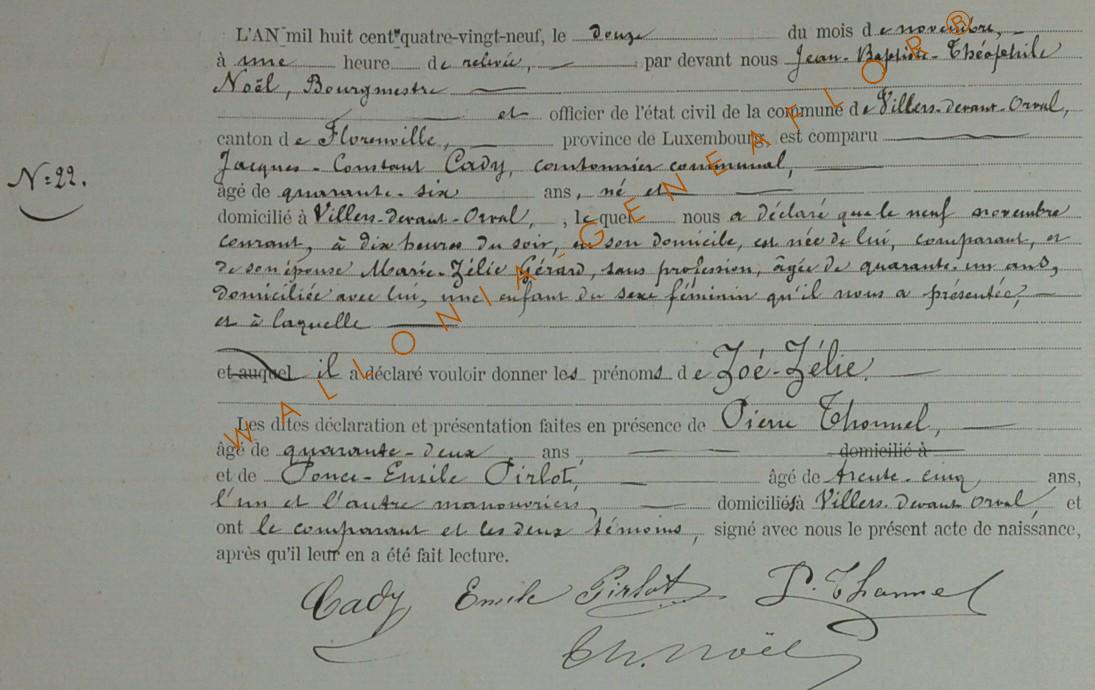 L'AN mil huit cent quatre-vingt-neuf, le douze du mois de novembre,
à une heure de relevée, par devant nous Jean-Baptiste-Théophile
Noël, Bourgmestre
et officier de l'état civil de la commune de Villers-devant-Orval,
canton de Florenville, province de Luxembourg, est comparu
Jacques-Constant Cady, cantonnier communal,
N: 22.
âgé de quarante-six ans, né et
domicilié à Villers-devant-Orval, , lequel nous a déclaré que le neuf novembre
courant, à dix heures du soir, en son domicile, est née de lui, comparant, et
de son épouse Marie-Zélie Gérard, sans profession, âgée de quarante-un ans,
domiciliée avec lui, une enfant du sexe féminin qu'il nous a présentée,
et à laquelle
et auquel il a déclaré vouloir donner les prénoms de Zoé-Zélie.
Les dites déclaration et présentation faites en présence de Pierre Thonnel,
âgé de quarante-deux ans, domicilié à
et de Ponce-Emile Pirlot, âgé de trente-cinq ans,
l'un et l'autre manouvriers, domiciliés à Villers-devant-Orval, et
ont le comparant et les deux témoins, signé avec nous le présent acte de naissance,
après qu'il leur en a été fait lecture.
Cady Emile Pirlot P. Thannel
Th. Noël
WALLONIA-GENEAFLOR®